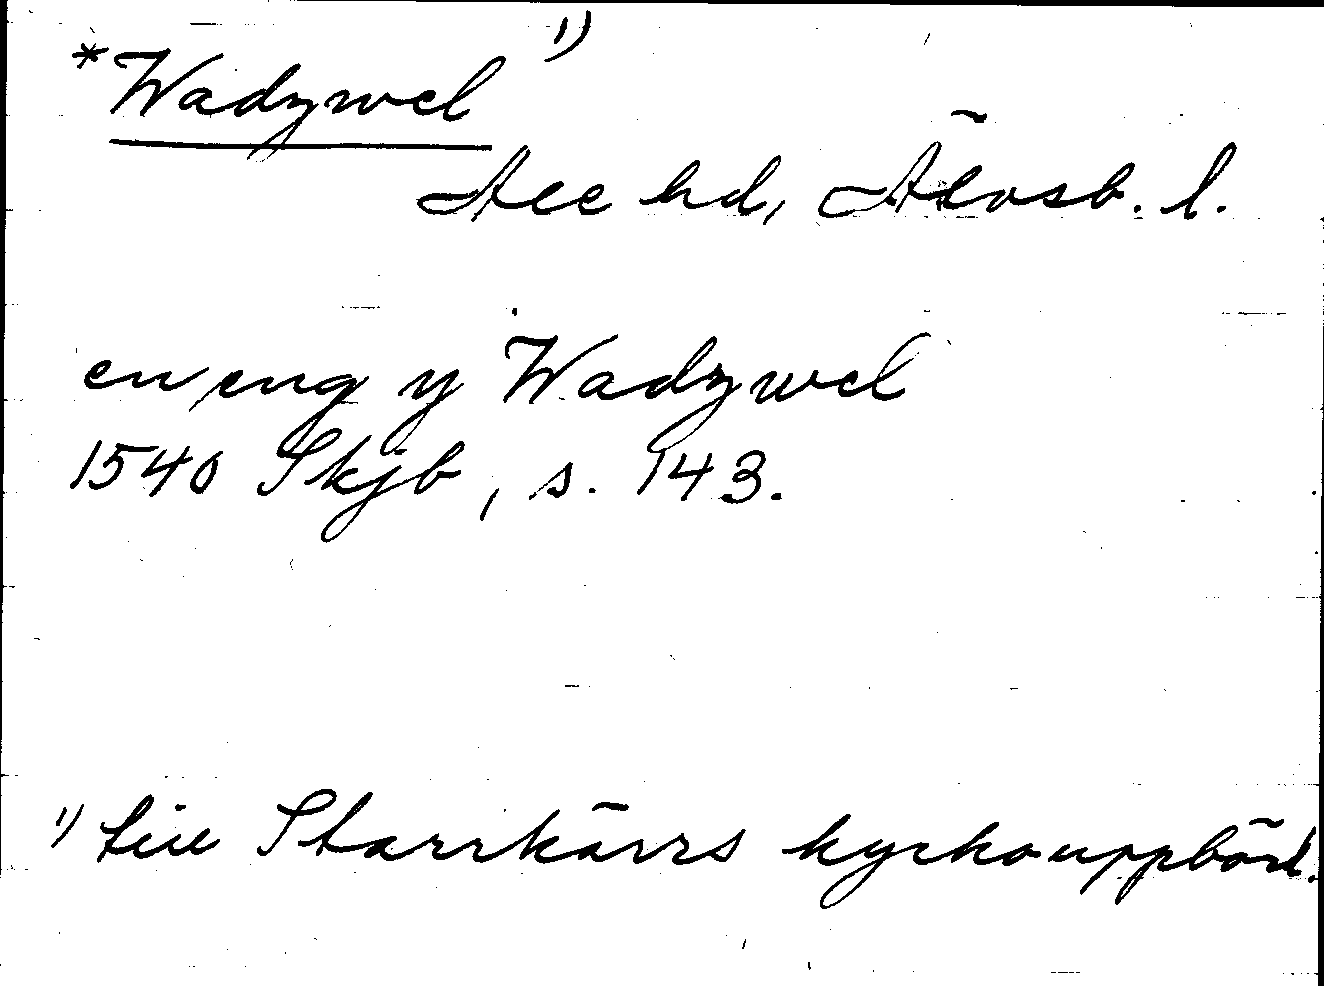 *Wadzwel 1)
Ale hd, Älvsb. l.
en eng y Wadzwel
1540 Skjb, s. 143.
1) till Starrkärrs kyrkouppbörd.